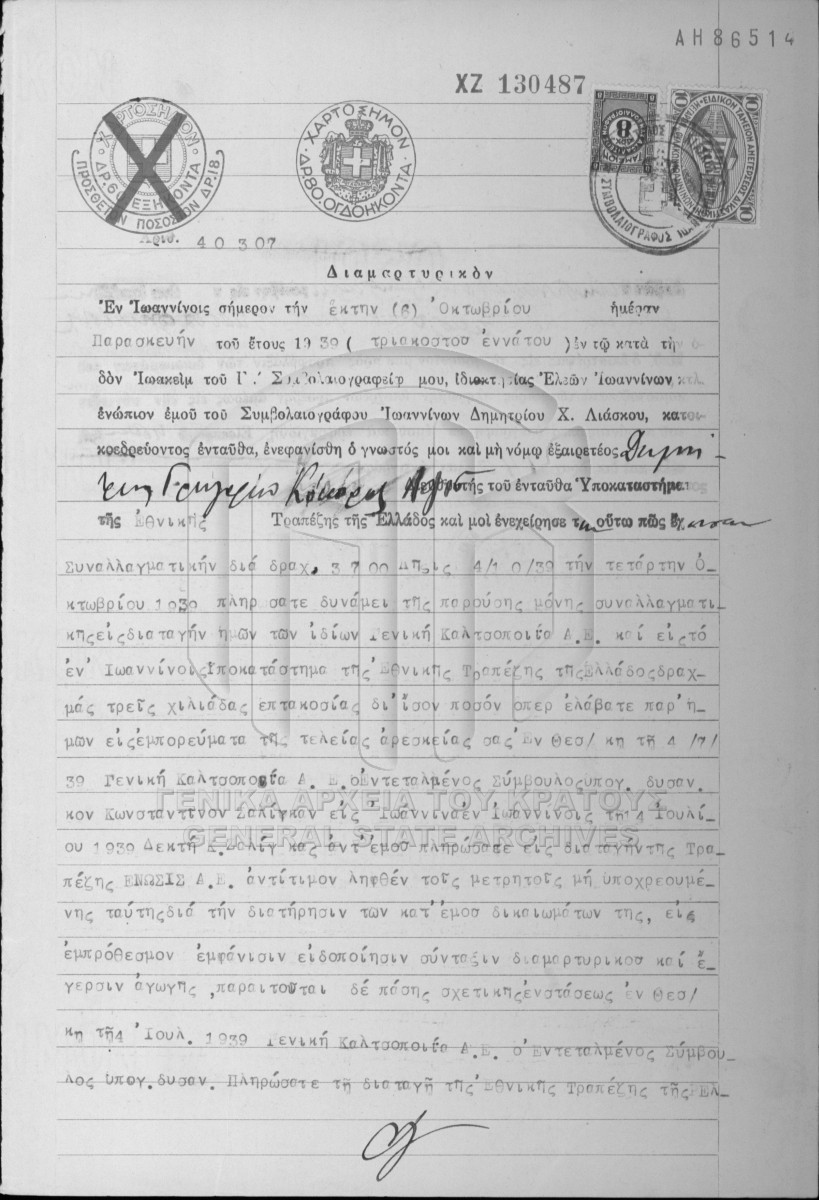 ΑΗ86514
ΧΖ 130487
ΧΑΡΤΟΣΗΜΟΝ
ΔΡ. 60 ΕΞΗΚΟΝΤΑ
ΠΡΟΣΘΕΤΟΝ ΠΟΣΟΣΤΟΝ ΔΡ.18
ΧΑΡΤΟΣΗΜΟΝ
ΔΡ.80.ΟΓΔΟΗΚΟΝΤΑ
8
10 10
ΣΥΜΒΟΛΑΙΟΓΡΑΦΟΣ
40307
Διαμαρτυρικὸν
Ἐν Ἰωαννίνοις σήμερον τὴν ἕκτην (6) Ὀκτωβρίου ἡμέραν
Παρασκευήν τοῦ ἔτους 1939 ( τριακοστοῦ ἐννάτου ) ἐν τῷ κατὰ τὴ
δὸν Ἰωακεὶμ τοῦ Γ΄. Συμβολαιογραφείῳ μου, ἰδιοκτησίας Ἐλεῶν Ἰωαννίνων κτλ
ἐνώπιον ἐμοῦ τοῦ Συμβολαιογράφου Ἰωαννίνων Δημητρίου Χ. Λιάσκου, κατοι
κοεδρεύοντος ἐνταῦθα, ἐνεφανίσθη ὁ γνωστός μοι καὶ μὴ νόμῳ ἐξαιρετέος Δημή-
τριος Γρηγορίου Διευθυντής τοῦ ἐνταῦθα Ὑποκαταστήματος
τῆς Ἐθνικῆς Τραπέζης τῆς Ἑλλάδος καὶ μοὶ ἐνεχείρησε τὴν οὕτω πῶς ἔχουσαν
Συναλλαγματικήν διά δραχ. 3700 Λῆξις 4/10/39 τήν τετάρτην Ὀ-
κτωβρίου 1939 πληρώσατε δυνάμει τῆς παρούσης μόνης συναλλαγματι-
κῆς εἰς διαταγήν ἡμῶν τῶν ἰδίων Γενική Καλτσοποιΐα Α.Ε. καί εἰς τό
ἐν Ἰωαννίνοις Ὑποκατάστημα τῆς Ἐθνικῆς Τραπέζης τῆς Ἑλλάδος δραχ-
μάς τρεῖς χιλιάδας επτακοσίας δι' ἴσον ποσόν οπερ ἐλάβατε παρ' ἡ-
μων εἰς ἐμπορεύματα τῆς τελείας ἀρεσκείας σας Ἐν Θεσ/κη τῇ 4/7/
39 Γενική Καλτσοποιΐα Α.Ε. ὁ Ἐντεταλμένος Σύμβουλος ὑπογ. δυσαν.
κον Κωνσταντῖνον Σαλίγκαν εἰς Ἰωάννινα ἐν Ἰωαννίνοις τῇ 14 Ἰουλί-
ου 1939 Δεκτή Κ. Σαλίγκας ἀντ' ἐμοῦ πληρώσατε εἰς διαταγήν της Τρα-
πέζης ΕΝΩΣΙΣ Α.Ε. ἀντίτιμον ληφθέν τοῖς μετρητοῖς μή υποχρεουμέ-
νης ταύτης διά τήν διατήρησιν τῶν κατ' ἐμοῦ δικαιωμάτων της, εἰς
ἐμπρόθεσμον ἐμφάνισιν εἰδοποίησιν σύνταξιν διαμαρτυρικοῦ καί ἔ-
γερσιν ἀγωγῆς ,παραιτοῦται δέ πάσης σχετικῆς ἐνστάσεως ἐν Θεσ/
κη τῇ 4 Ἰουλ. 1939 Γενική Καλτσοποιΐα Α.Ε. ὁ Ἐντεταλμένος Σύμβου-
λος ὑπογ. δυσαν. Πληρώσατε τῇ διαταγῇ τῆς Ἐθνικῆς Τραπέζης τῆς Ἑλ-
ΓΕΝΙΚΑ ΑΡΧΕΙΑ ΤΟΥ ΚΡΑΤΟΥΣ
GENERAL STATE ARCHIVES